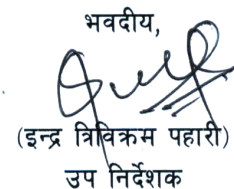 भवदीय,
(इन्द्र त्रिविक्रम पहारी)
उप निर्देशक